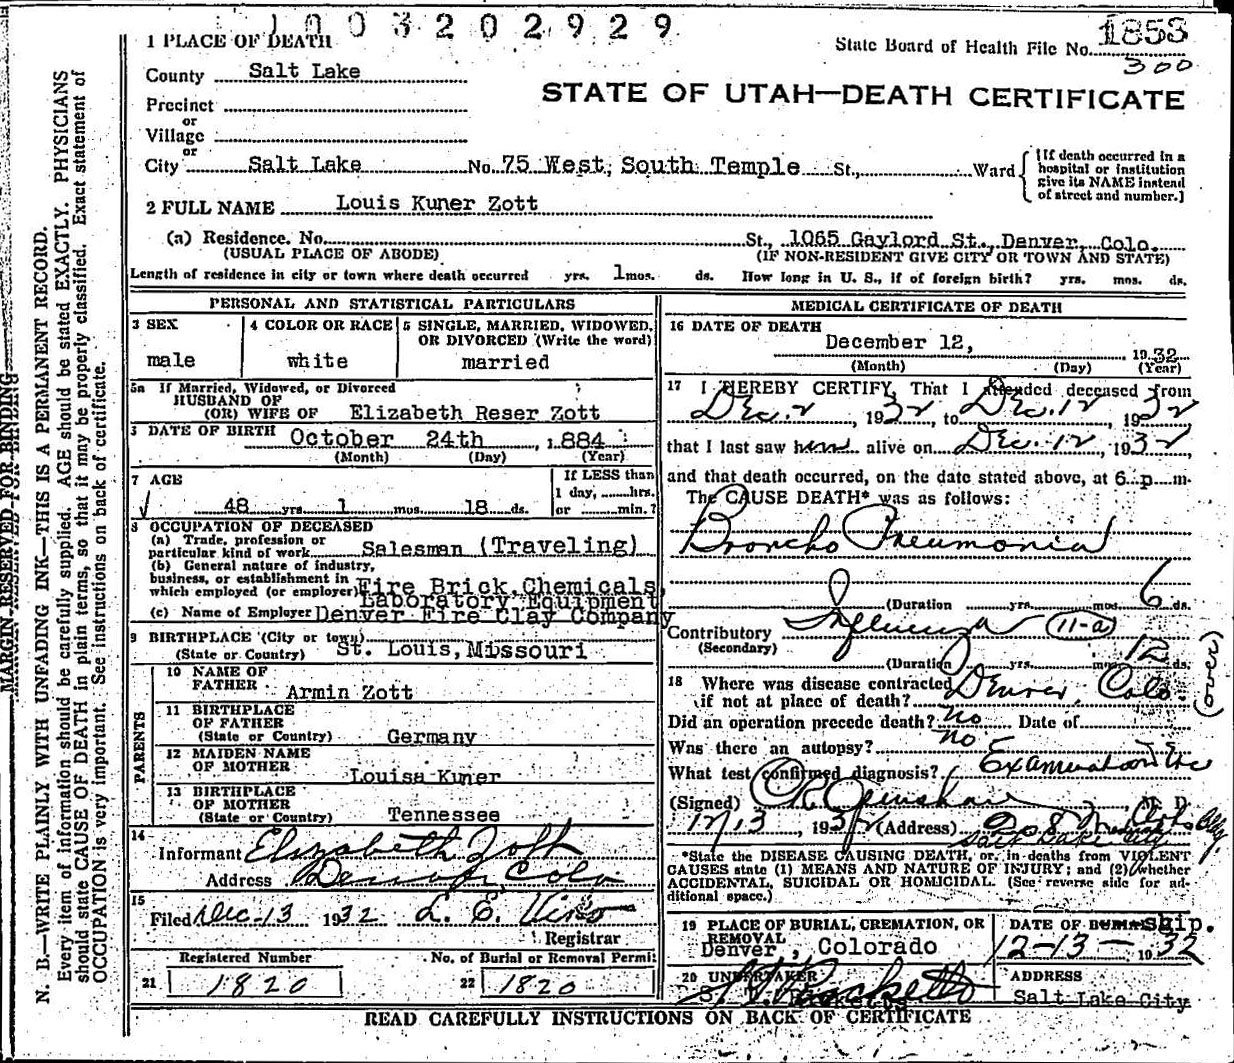 1003202929
1 PLACE OF DEATH
State Board of Health File No. 1853
300
County Salt Lake
STATE OF UTAH—DEATH CERTIFICATE
Precinct
or
Village
or
City Salt Lake No. 75 West South Temple St., Ward
[If death occurred in a hospital or institution give its NAME instead of street and number.]
2 FULL NAME Louis Kuner Zott
(a) Residence. No. St., 1065 Gaylord St., Denver, Colo.
(USUAL PLACE OF ABODE) (IF NON-RESIDENT GIVE CITY OR TOWN AND STATE)
Length of residence in city or town where death occurred yrs. 1 mos. ds. How long in U. S., if of foreign birth? yrs. mos. ds.
PERSONAL AND STATISTICAL PARTICULARS
3 SEX
male
4 COLOR OR RACE
white
5 SINGLE, MARRIED, WIDOWED, OR DIVORCED (Write the word)
married
5a If Married, Widowed, or Divorced
HUSBAND OF
(OR) WIFE OF Elizabeth Reser Zott
DATE OF BIRTH October 24th , 1884
(Month) (Day) (Year)
7 AGE
48 yrs. 1 mos. 18 ds.
If LESS than
1 day, hrs.
or min.?
8 OCCUPATION OF DECEASED
(a) Trade, profession or
particular kind of work Salesman (Traveling)
(b) General nature of industry,
business, or establishment in
which employed (or employer) Fire Brick, Chemicals,
Laboratory Equipment
(c) Name of Employer Denver Fire Clay Company
9 BIRTHPLACE (City or town)
(State or Country) St. Louis, Missouri
PARENTS
10 NAME OF
FATHER Armin Zott
11 BIRTHPLACE
OF FATHER
(State or Country) Germany
12 MAIDEN NAME
OF MOTHER Louisa Kuner
13 BIRTHPLACE
OF MOTHER
(State or Country) Tennessee
14
Informant Elizabeth Zott
Address Denver Colo
15
Filed Dec-13 1932 L. E.
Registrar
Registered Number
21 1820
No. of Burial or Removal Permit
22 1820
MEDICAL CERTIFICATE OF DEATH
16 DATE OF DEATH
December 12, 1932
(Month) (Day) (Year)
17 I HEREBY CERTIFY, That I attended deceased from
Dec. 2, 1932, to Dec. 12 1932
that I last saw him alive on Dec. 12, 1932
and that death occurred, on the date stated above, at 6 p m.
The CAUSE DEATH* was as follows:
Broncho Pneumonia
(Duration yrs. mos. 6 ds.
Contributory Influenza 11-a
(Secondary)
(Duration) yrs. mos. 12 ds.
(over)
18 Where was disease contracted
if not at place of death? Denver, Colo
Did an operation precede death? No Date of
Was there an autopsy? No
What test confirmed diagnosis? Examination Etc
(Signed) M. D.
12/13, 1932 (Address) Bldg.
Salt Lake City
*State the DISEASE CAUSING DEATH, or, in deaths from VIOLENT
CAUSES state (1) MEANS AND NATURE OF INJURY; and (2) whether
ACCIDENTAL, SUICIDAL OR HOMICIDAL. (See reverse side for ad-
ditional space.)
19 PLACE OF BURIAL, CREMATION, OR
REMOVAL
Denver, Colorado
DATE OF BURIAL Ship.
12-13- 1932
20 UNDERTAKER
ADDRESS
Salt Lake City
READ CAREFULLY INSTRUCTIONS ON BACK OF CERTIFICATE
MARGIN RESERVED FOR BINDING
N. B.—WRITE PLAINLY WITH UNFADING INK—THIS IS A PERMANENT RECORD.
Every item of information should be carefully supplied. AGE should be stated EXACTLY. PHYSICIANS
should state CAUSE OF DEATH in plain terms, so that it may be properly classified. Exact statement of
OCCUPATION is very important. See instructions on back of certificate.